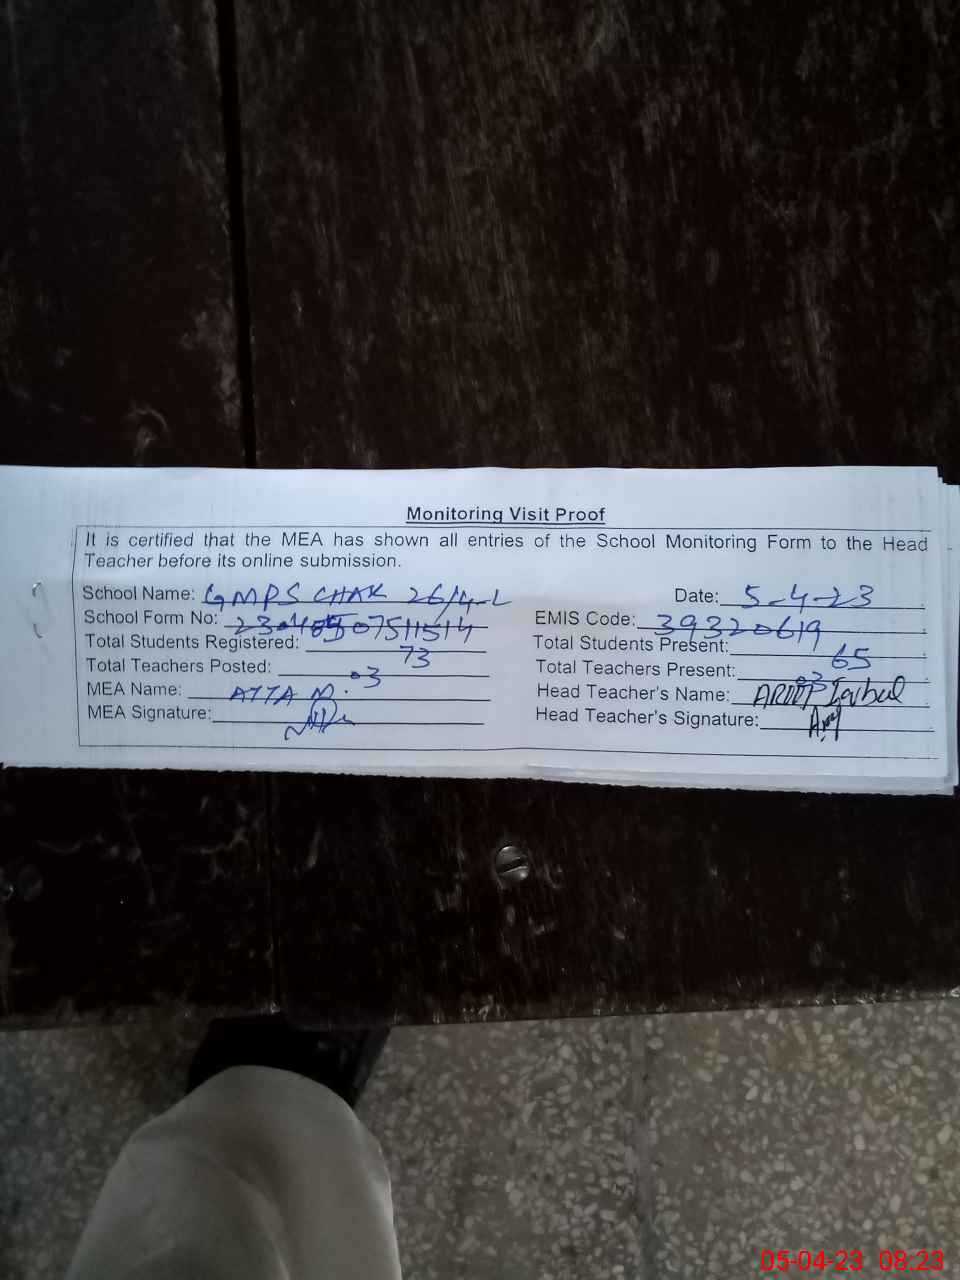 Monitoring Visit Proof
It is certified that the MEA has shown all entries of the School Monitoring Form to the Head
Teacher before its online submission.
School Name: GMPS CHAK 26/4-L Date: 5-4-23
School Form No: EMIS Code: 39320619
Total Students Registered: 73 Total Students Present: 65
Total Teachers Posted: 03 Total Teachers Present: 03
MEA Name: ATTA M. Head Teacher's Name: Iqbal
MEA Signature: Head Teacher's Signature:
05-04-23 08:23